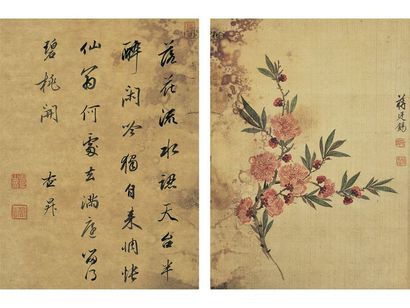 落花流水認天台半
醉閑吟獨自来惆悵
仙翁何處去滿庭留得
碧桃開
查昇
蔣廷錫